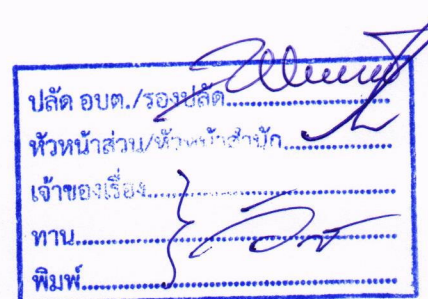 ปลัด อบต./รองปลัด....................
หัวหน้าส่วน/หัวหน้าสำนัก....................
เจ้าของเรื่อง....................
ทาน....................
พิมพ์....................